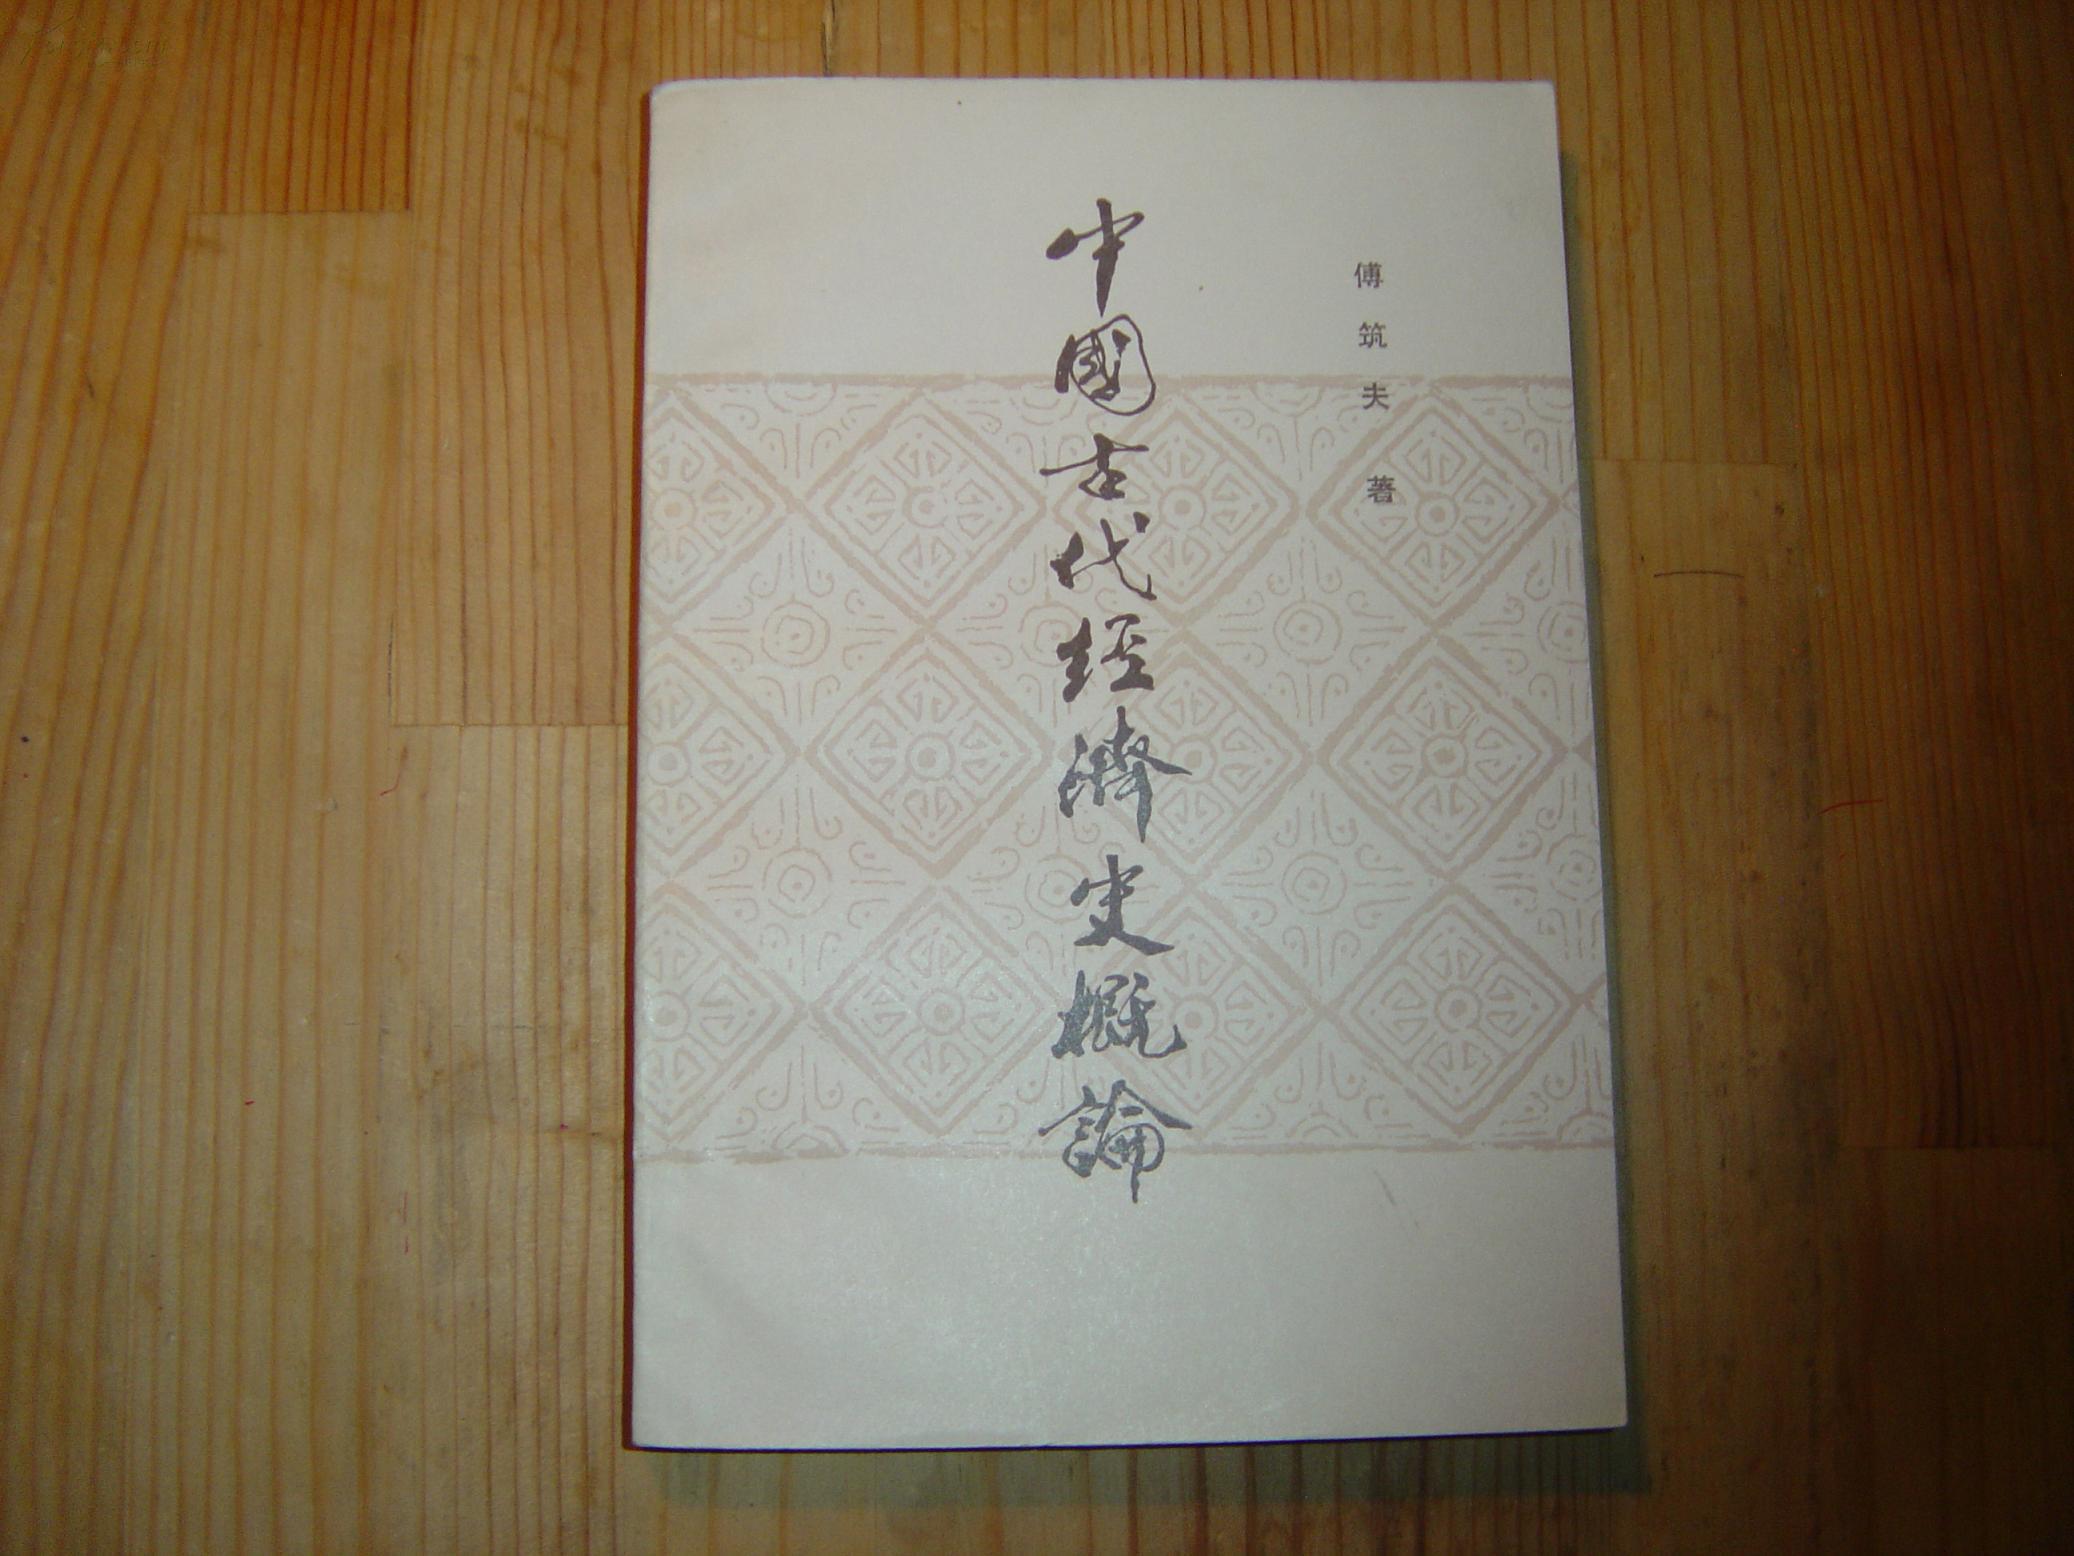 傅筑夫 著
中國古代經濟史概論